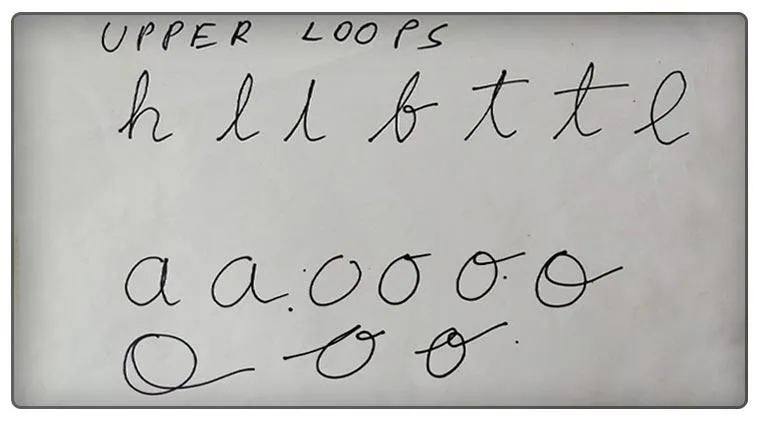 UPPER LOOPS
h l l b t t l
a a o o o o
o o o